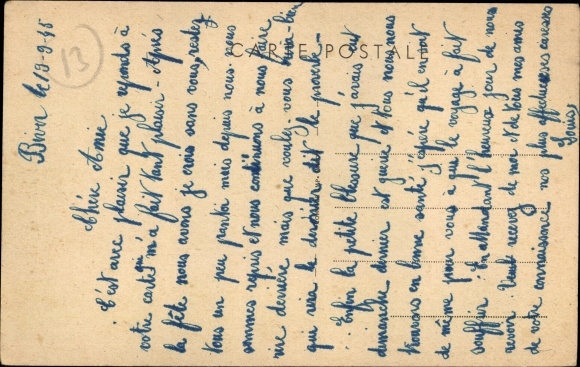 CARTE POSTALE
13
Bron le 19-9-45
Chère Amie
C'est avec plaisir que je réponds à
votre carte qui m'a fait tant plaisir - Après
la fête nous avons je crois sans vous, restez
tous un peu mais depuis nous nous
sommes repris et nous continuons à nous faire
une derrière mais que voulez-vous
qui rira le dernier dit le proverbe -
Enfin la petite blessure que j'avais eut
dimanche dernier est guérie et tous nous nous
trouvons en bonne santé j'espère qu'il en soit
de même pour vous à qui le voyage à fait
souffrir. En attendant l'heureux jour de nous
revoir. Veuillez recevez de moi et de tous mes amis
de votre connaissance nos plus affectueuses caresses
Louis